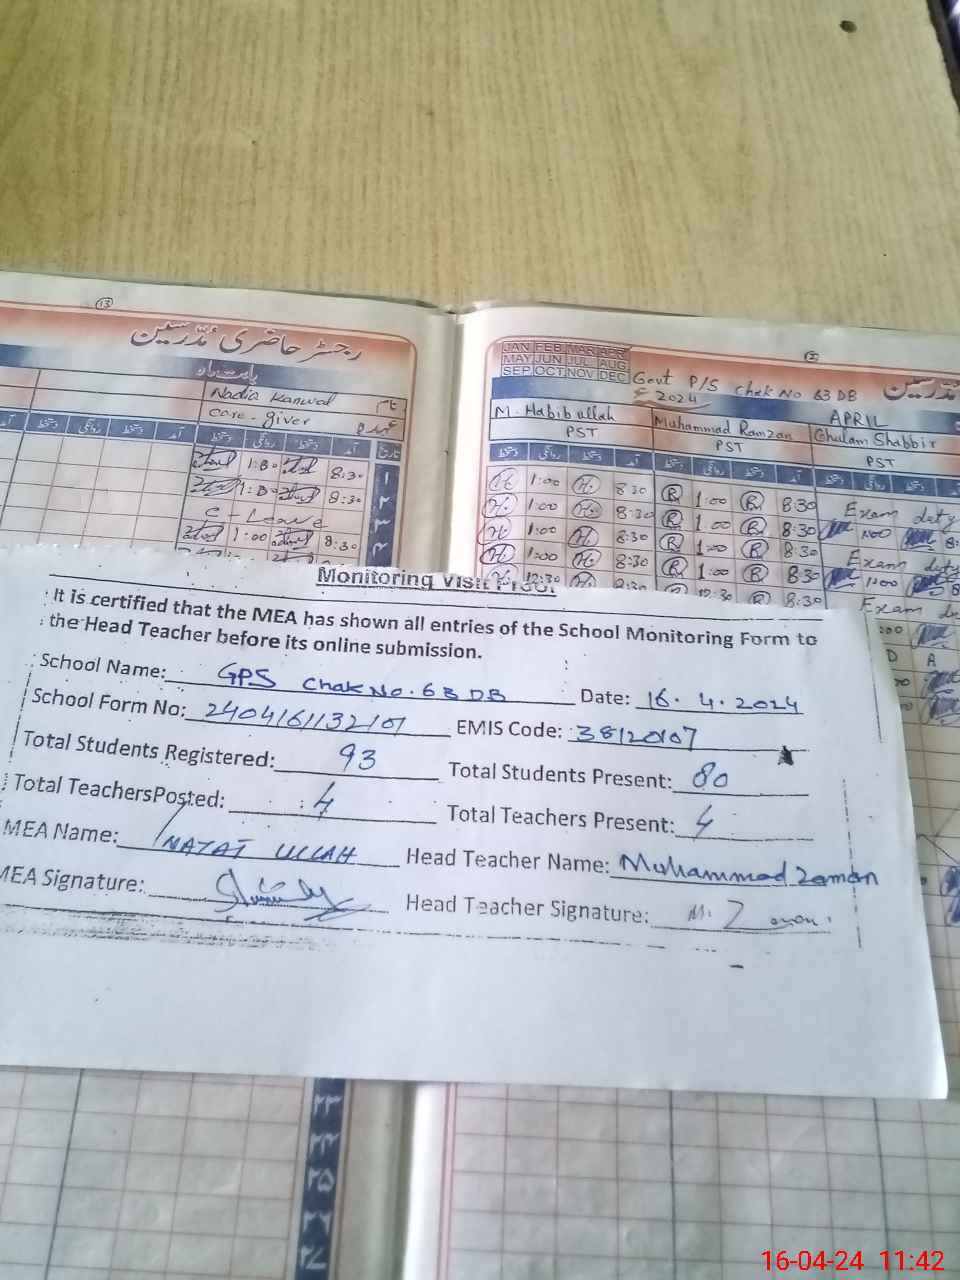 13
رجسٹر حاضری مُدرّسین
بابت ماہ
Nadia Kanwal نام
Care-giver عہدہ
آمد دستخط روانگی دستخط آمد دستخط روانگی دستخط تاریخ
1:00 8:30
1:00 8:30
C-Leave
1:00 8:30
JAN FEB MAR APR
MAY JUN JUL AUG
SEP OCT NOV DEC
Govt P/S Chak No 63 DB
2024 APRIL
M. Habib ullah Muhammad Ramzan Ghulam Shabbir
PST PST PST
دستخط روانگی دستخط آمد دستخط روانگی دستخط آمد دستخط روانگی دستخط
H 1:00 H 8:30 R 1:00 R 8:30 Exam duty
H 1:00 H 8:30 R 1:00 R 8:30
H 1:00 H 8:30 R 1:00 R 8:30 Exam duty
H 1:00 H 8:30 R 1:00 R 8:30 1:00
12:30 8:30 R 12:30 R 8:30 Exam
A
Monitoring Visit Proof
It is certified that the MEA has shown all entries of the School Monitoring Form to
the Head Teacher before its online submission.
School Name: GPS Chak No. 63 DB Date: 16.4.2024
School Form No: 2404161132101 EMIS Code: 38120107
Total Students Registered: 93 Total Students Present: 80
Total TeachersPosted: 4 Total Teachers Present: 4
MEA Name: INAYAT ULLAH Head Teacher Name: Muhammad Zaman
MEA Signature: Head Teacher Signature: M. Zaman
۲۳
۲۴
۲۵
۲۶
۲۷
16-04-24 11:42